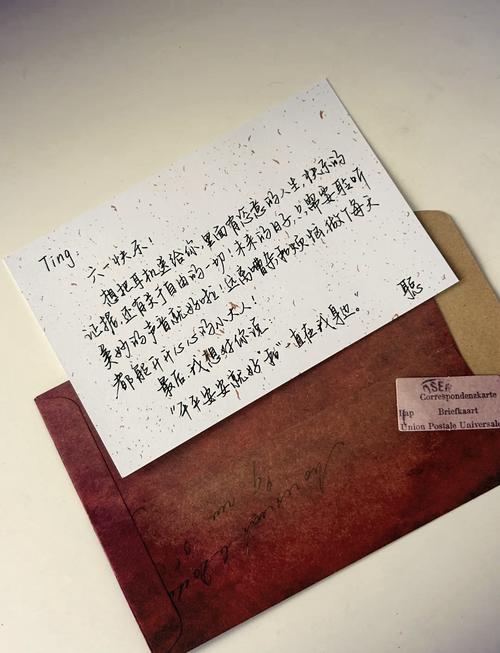 Ting
六一快乐!
想把耳机送给你,里面有恣意的人生,快乐的
证据,还有关于自由的一切!未来的日子,只需要聆听
美妙的声音就好啦!远离嘈杂和烦恼,做个每天
都能开开心心的小大人!
最后,我想对你说
"平平安安就好""我"一直在我身边"。
聪
Correspondenzkarte
Briefkaart
Union Postale Universale